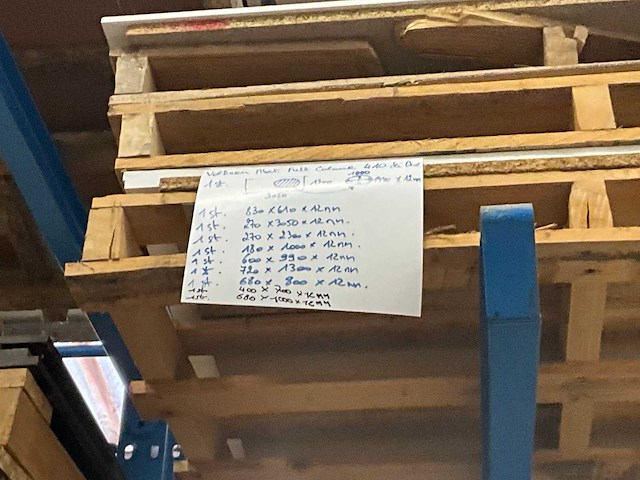 Volkern Mat Full Colour 410
1 st. 1300 1000 x 12mm
3050
1 st. 630 x 610 x 12mm
1 st. 270 x 3050 x 12mm.
1 st. 270 x 2300 x 12mm.
1 st. 130 x 1000 x 12mm.
1 st. 600 x 990 x 12mm
1 st. 720 x 1300 x 12mm
1 st. 680 x 800 x 12mm.
1 st. 400 x 700 x 12mm
1 st. 680 x 1000 x 12mm